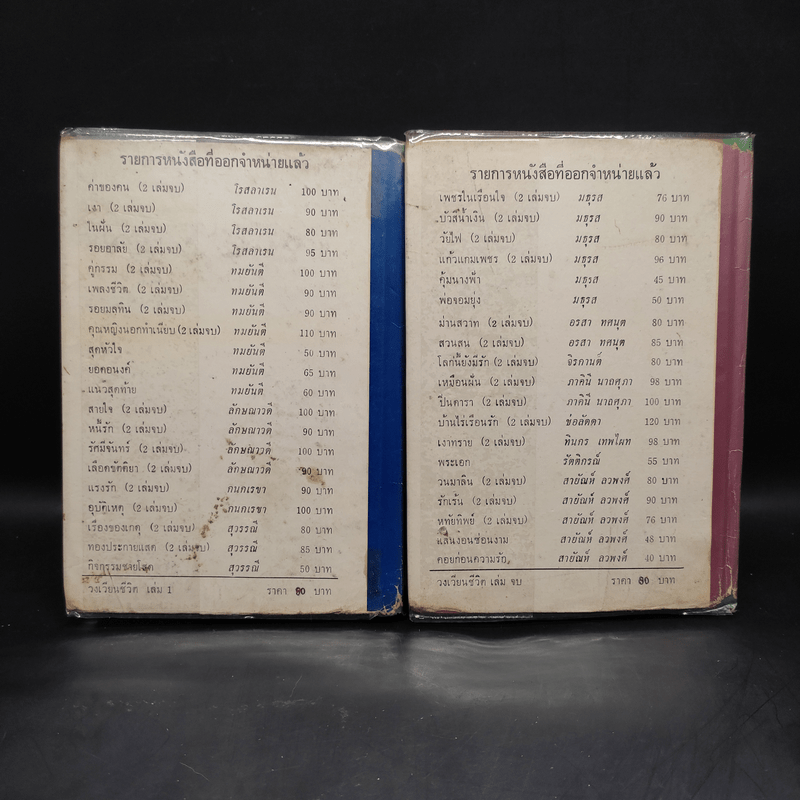 รายการหนังสือที่ออกจำหน่ายแล้ว
ค่าของคน (2 เล่มจบ) โรสลาเรน 100 บาท
เงา (2 เล่มจบ) โรสลาเรน 90 บาท
ในฝัน (2 เล่มจบ) โรสลาเรน 80 บาท
รอยอาลัย (2 เล่มจบ) โรสลาเรน 95 บาท
คู่กรรม (2 เล่มจบ) ทมยันตี 100 บาท
เพลงชีวิต (2 เล่มจบ) ทมยันตี 90 บาท
รอยมลทิน (2 เล่มจบ) ทมยันตี 90 บาท
คุณหญิงนอกทำเนียบ (2 เล่มจบ) ทมยันตี 110 บาท
สุดหัวใจ ทมยันตี 50 บาท
ยอดอนงค์ ทมยันตี 65 บาท
แนวสุดท้าย ทมยันตี 60 บาท
สายใจ (2 เล่มจบ) ลักษณาวดี 100 บาท
หนี้รัก (2 เล่มจบ) ลักษณาวดี 90 บาท
รัศมีจันทร์ (2 เล่มจบ) ลักษณาวดี 100 บาท
เลือดขัตติยา (2 เล่มจบ) ลักษณาวดี 90 บาท
แรงรัก (2 เล่มจบ) กนกเรขา 90 บาท
อุบัติเหตุ (2 เล่มจบ) กนกเรขา 100 บาท
เรื่องของเกตุ (2 เล่มจบ) สุวรรณี 80 บาท
ทองประกายแสด (2 เล่มจบ) สุวรรณี 85 บาท
กิจกรรมชายโสด สุวรรณี 50 บาท
วงเวียนชีวิต เล่ม 1 ราคา 80 บาท
รายการหนังสือที่ออกจำหน่ายแล้ว
เพชรในเรือนใจ (2 เล่มจบ) มธุรส 76 บาท
บัวสีน้ำเงิน (2 เล่มจบ) มธุรส 90 บาท
วัยไฟ (2 เล่มจบ) มธุรส 80 บาท
แก้วแกมเพชร (2 เล่มจบ) มธุรส 96 บาท
คุ้มนางฟ้า มธุรส 45 บาท
พ่อจอมยุ่ง มธุรส 50 บาท
ม่านสวาท (2 เล่มจบ) อรสา ทศนุต 80 บาท
สวนสน (2 เล่มจบ) อรสา ทศนุต 85 บาท
โลกนี้ยังมีรัก (2 เล่มจบ) จิรกานต์ 80 บาท
เหมือนฝัน (2 เล่มจบ) ภาคินี นาถศุภา 98 บาท
ปิ่นดารา (2 เล่มจบ) ภาคินี นาถศุภา 100 บาท
บ้านไร่เรือนรัก (2 เล่มจบ) ช่อลัดดา 120 บาท
เงาทราย (2 เล่มจบ) ทินกร เทพไผท 98 บาท
พระเอก รัตติกรณ์ 55 บาท
วนมาลิน (2 เล่มจบ) สายัณห์ ลวพงศ์ 80 บาท
รักเร้น (2 เล่มจบ) สายัณห์ ลวพงศ์ 90 บาท
หทัยทิพย์ (2 เล่มจบ) สายัณห์ ลวพงศ์ 76 บาท
แสนงอนซ่อนงาม สายัณห์ ลวพงศ์ 48 บาท
คอยก่อนความรัก สายัณห์ ลวพงศ์ 40 บาท
วงเวียนชีวิต เล่ม จบ ราคา 80 บาท